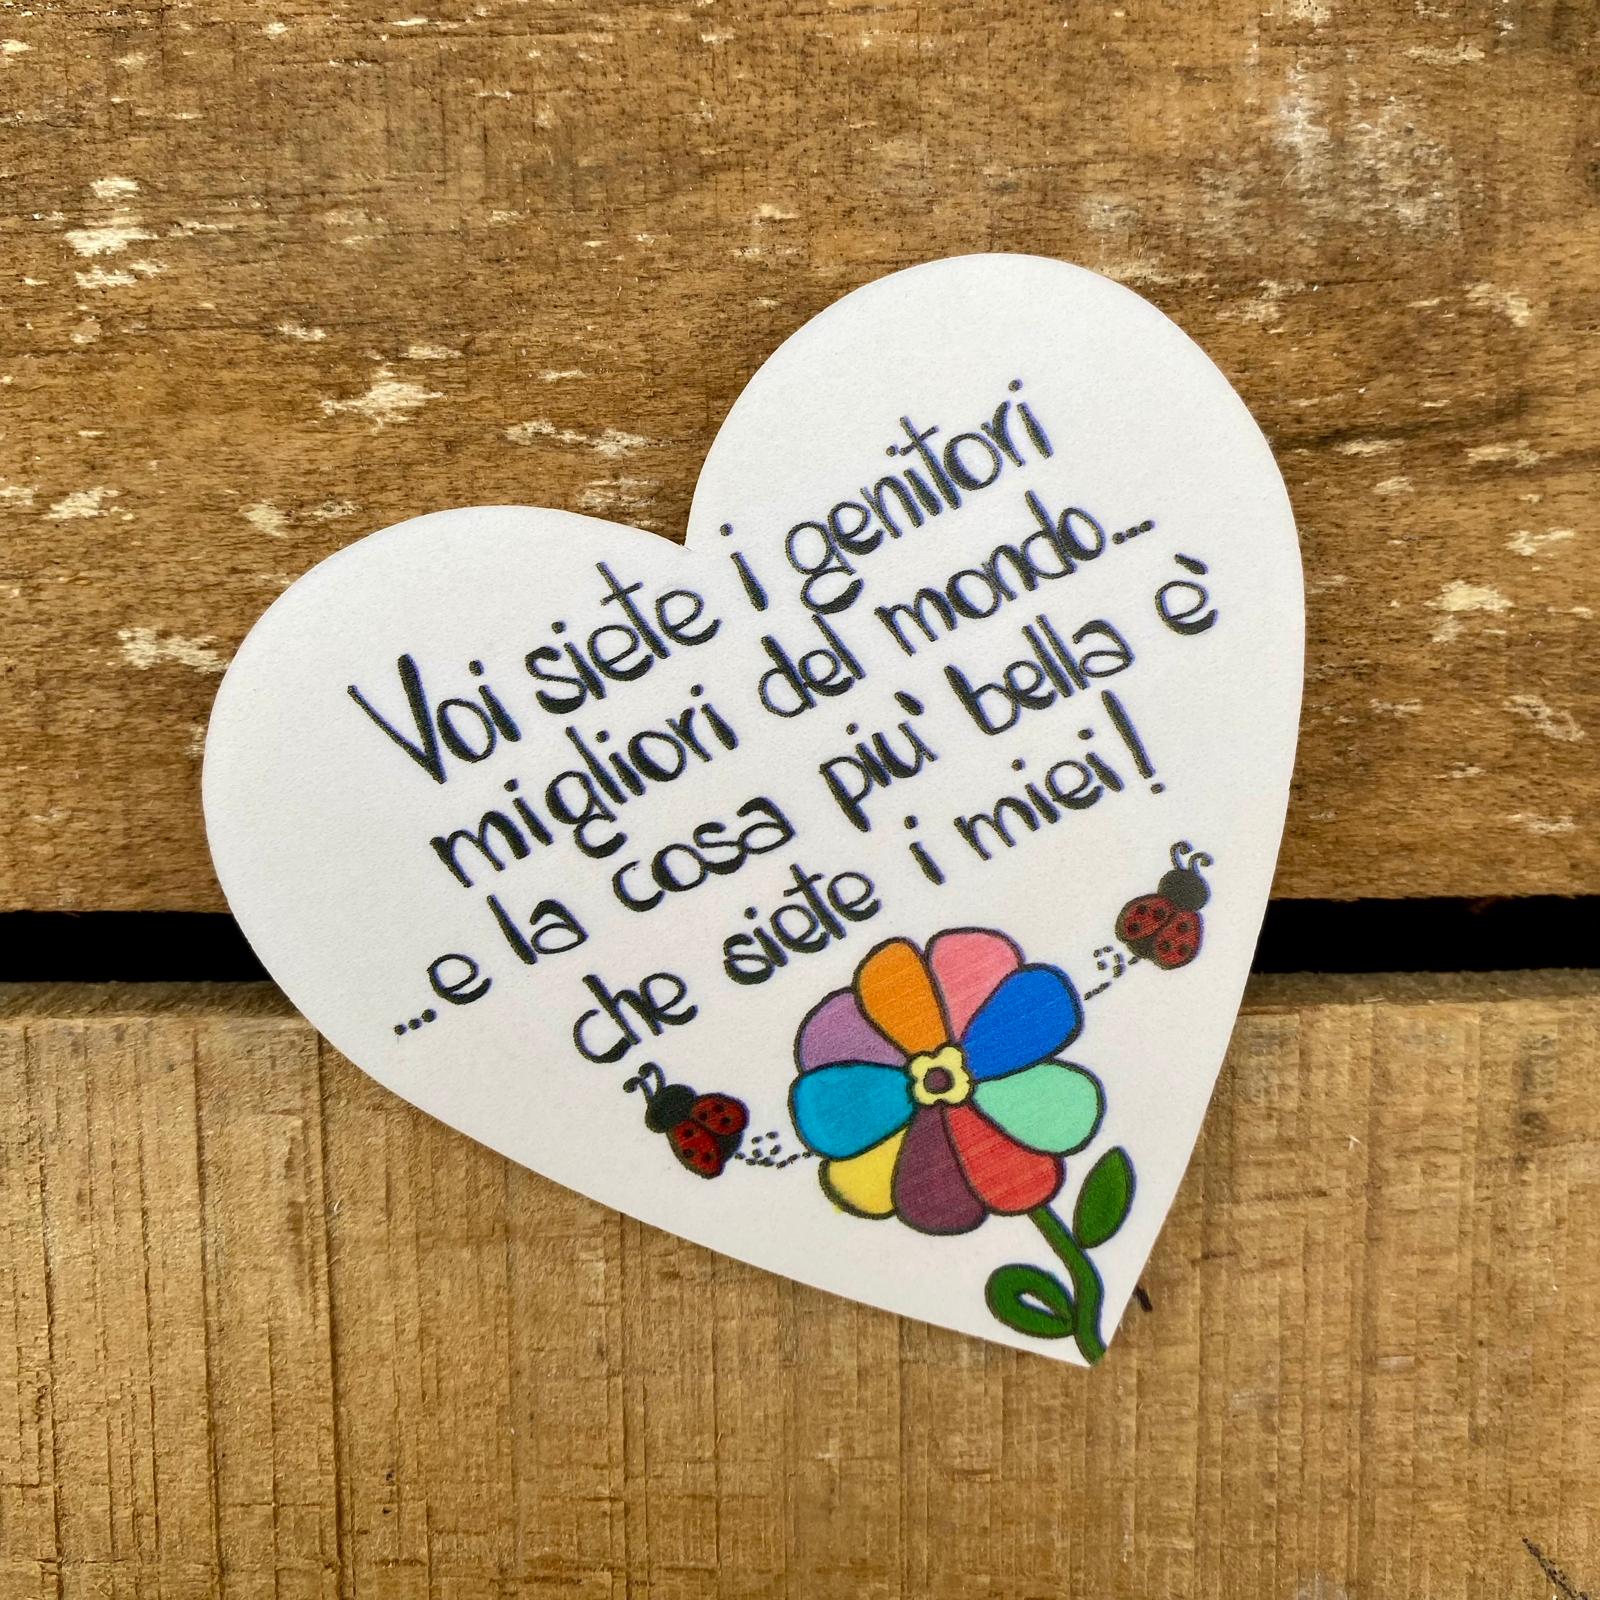 Voi siete i genitori
migliori del mondo...
...e la cosa più bella è
che siete i miei!